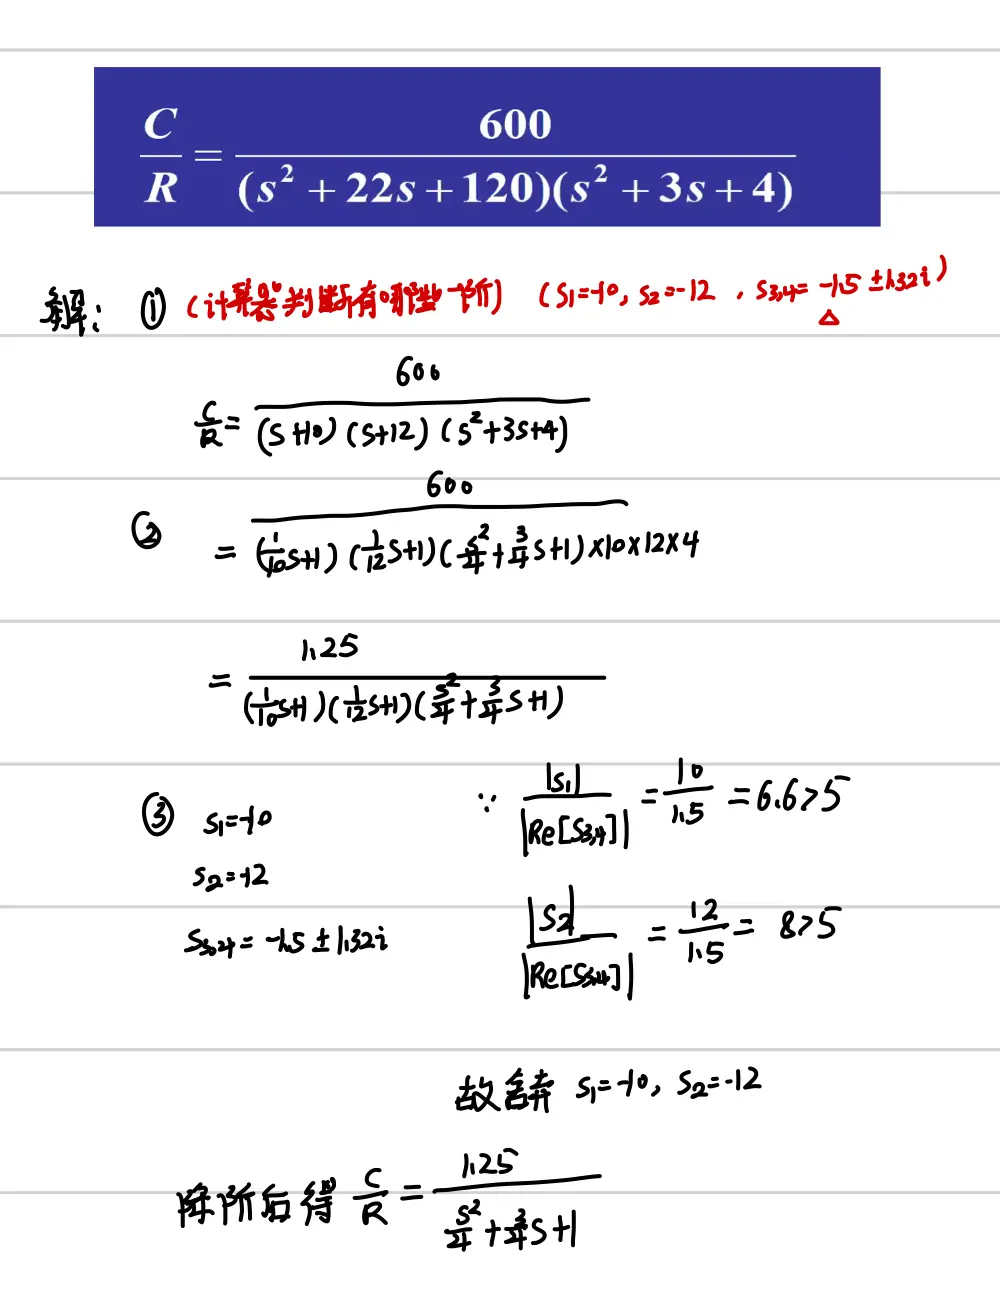 C/R = 600/((s²+22s+120)(s²+3s+4))
解: ① (计算器判断有哪些一阶) (S₁=-10, S₂=-12, S₃,₄=-1.5±1.32i)
△
C/R = 600/((S+10)(S+12)(S²+3S+4))
② = 600/((1/10 S+1)(1/12 S+1)(S²/4+3/4 S+1)×10×12×4)
= 1.25/((1/10 S+1)(1/12 S+1)(S²/4+3/4 S+1))
③ S₁=-10
S₂=-12
S₃,₄=-1.5±1.32i
∵ |S₁|/|Re[S₃,₄]| = 10/1.5 = 6.6>5
|S₂|/|Re[S₃,₄]| = 12/1.5 = 8>5
故舍弃 S₁=-10, S₂=-12
降阶后得 C/R = 1.25/(S²/4+3/4 S+1)